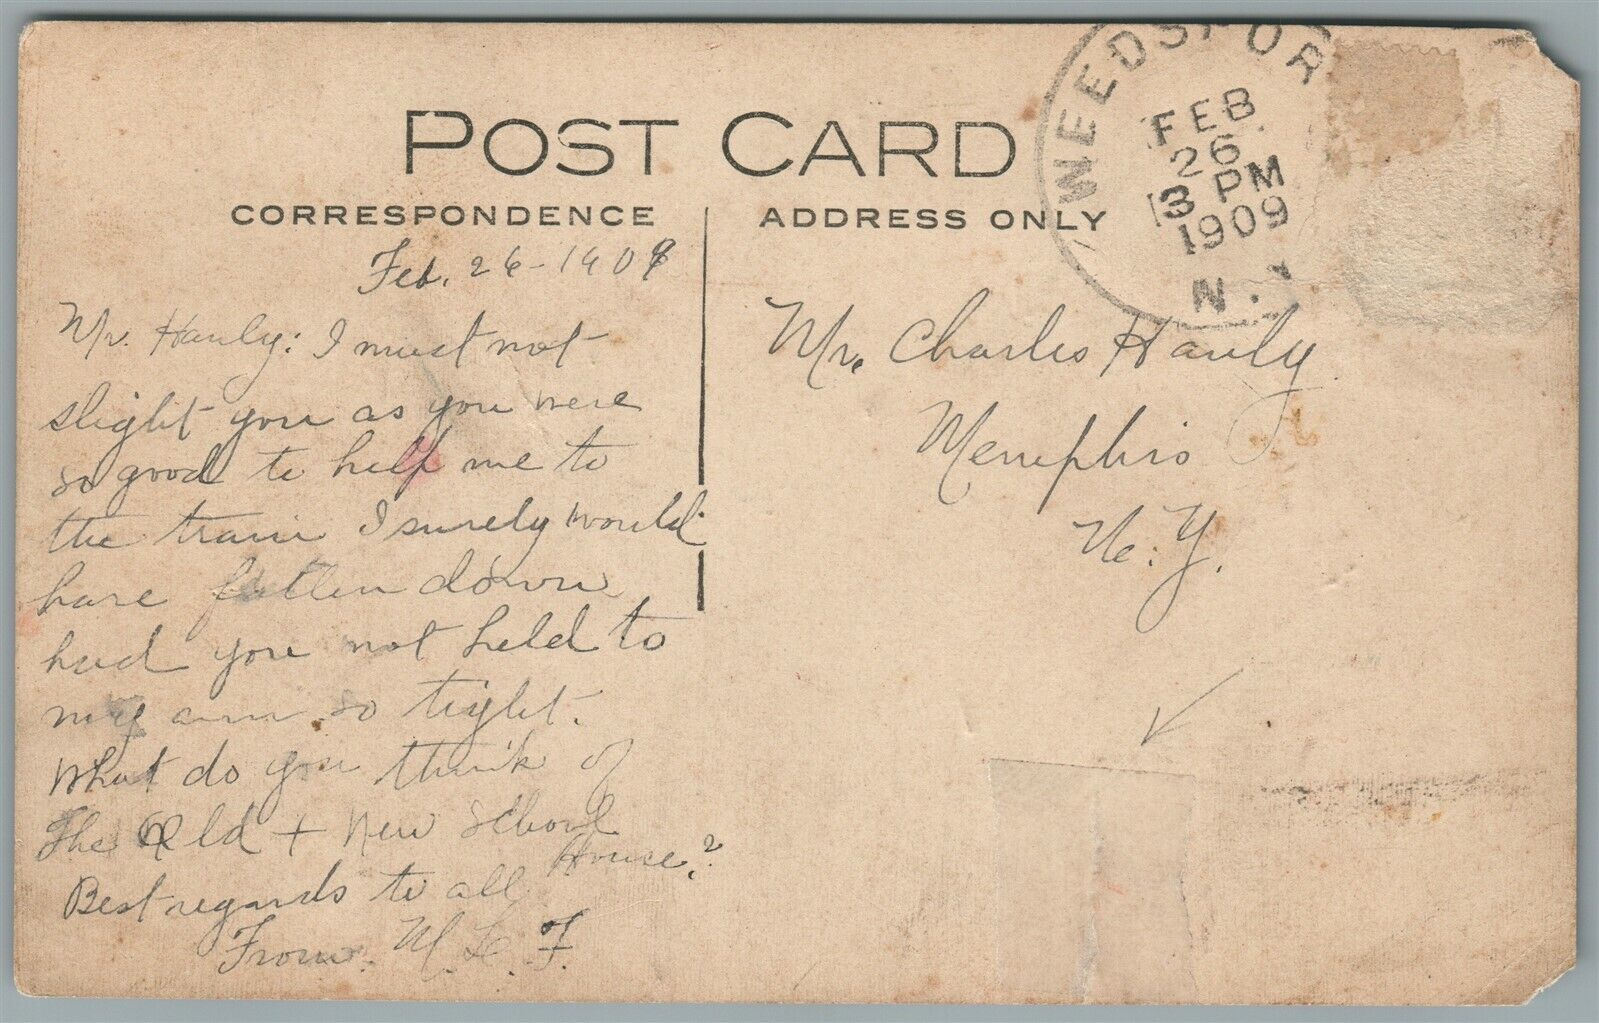 POST CARD
CORRESPONDENCE
ADDRESS ONLY
WEEDSPOR
FEB
26
3 PM
1909
N.Y
Feb. 26-1909
Mr. Hauly: I must not
slight you as you were
so good to help me to
the train I surely would
have fallen down
had you not held to
my arm so tight.
What do you think of
The Old + New School
House?
Best regards to all
From M. L. F.
Mr. Charles Hauly
Memphis
N. Y.